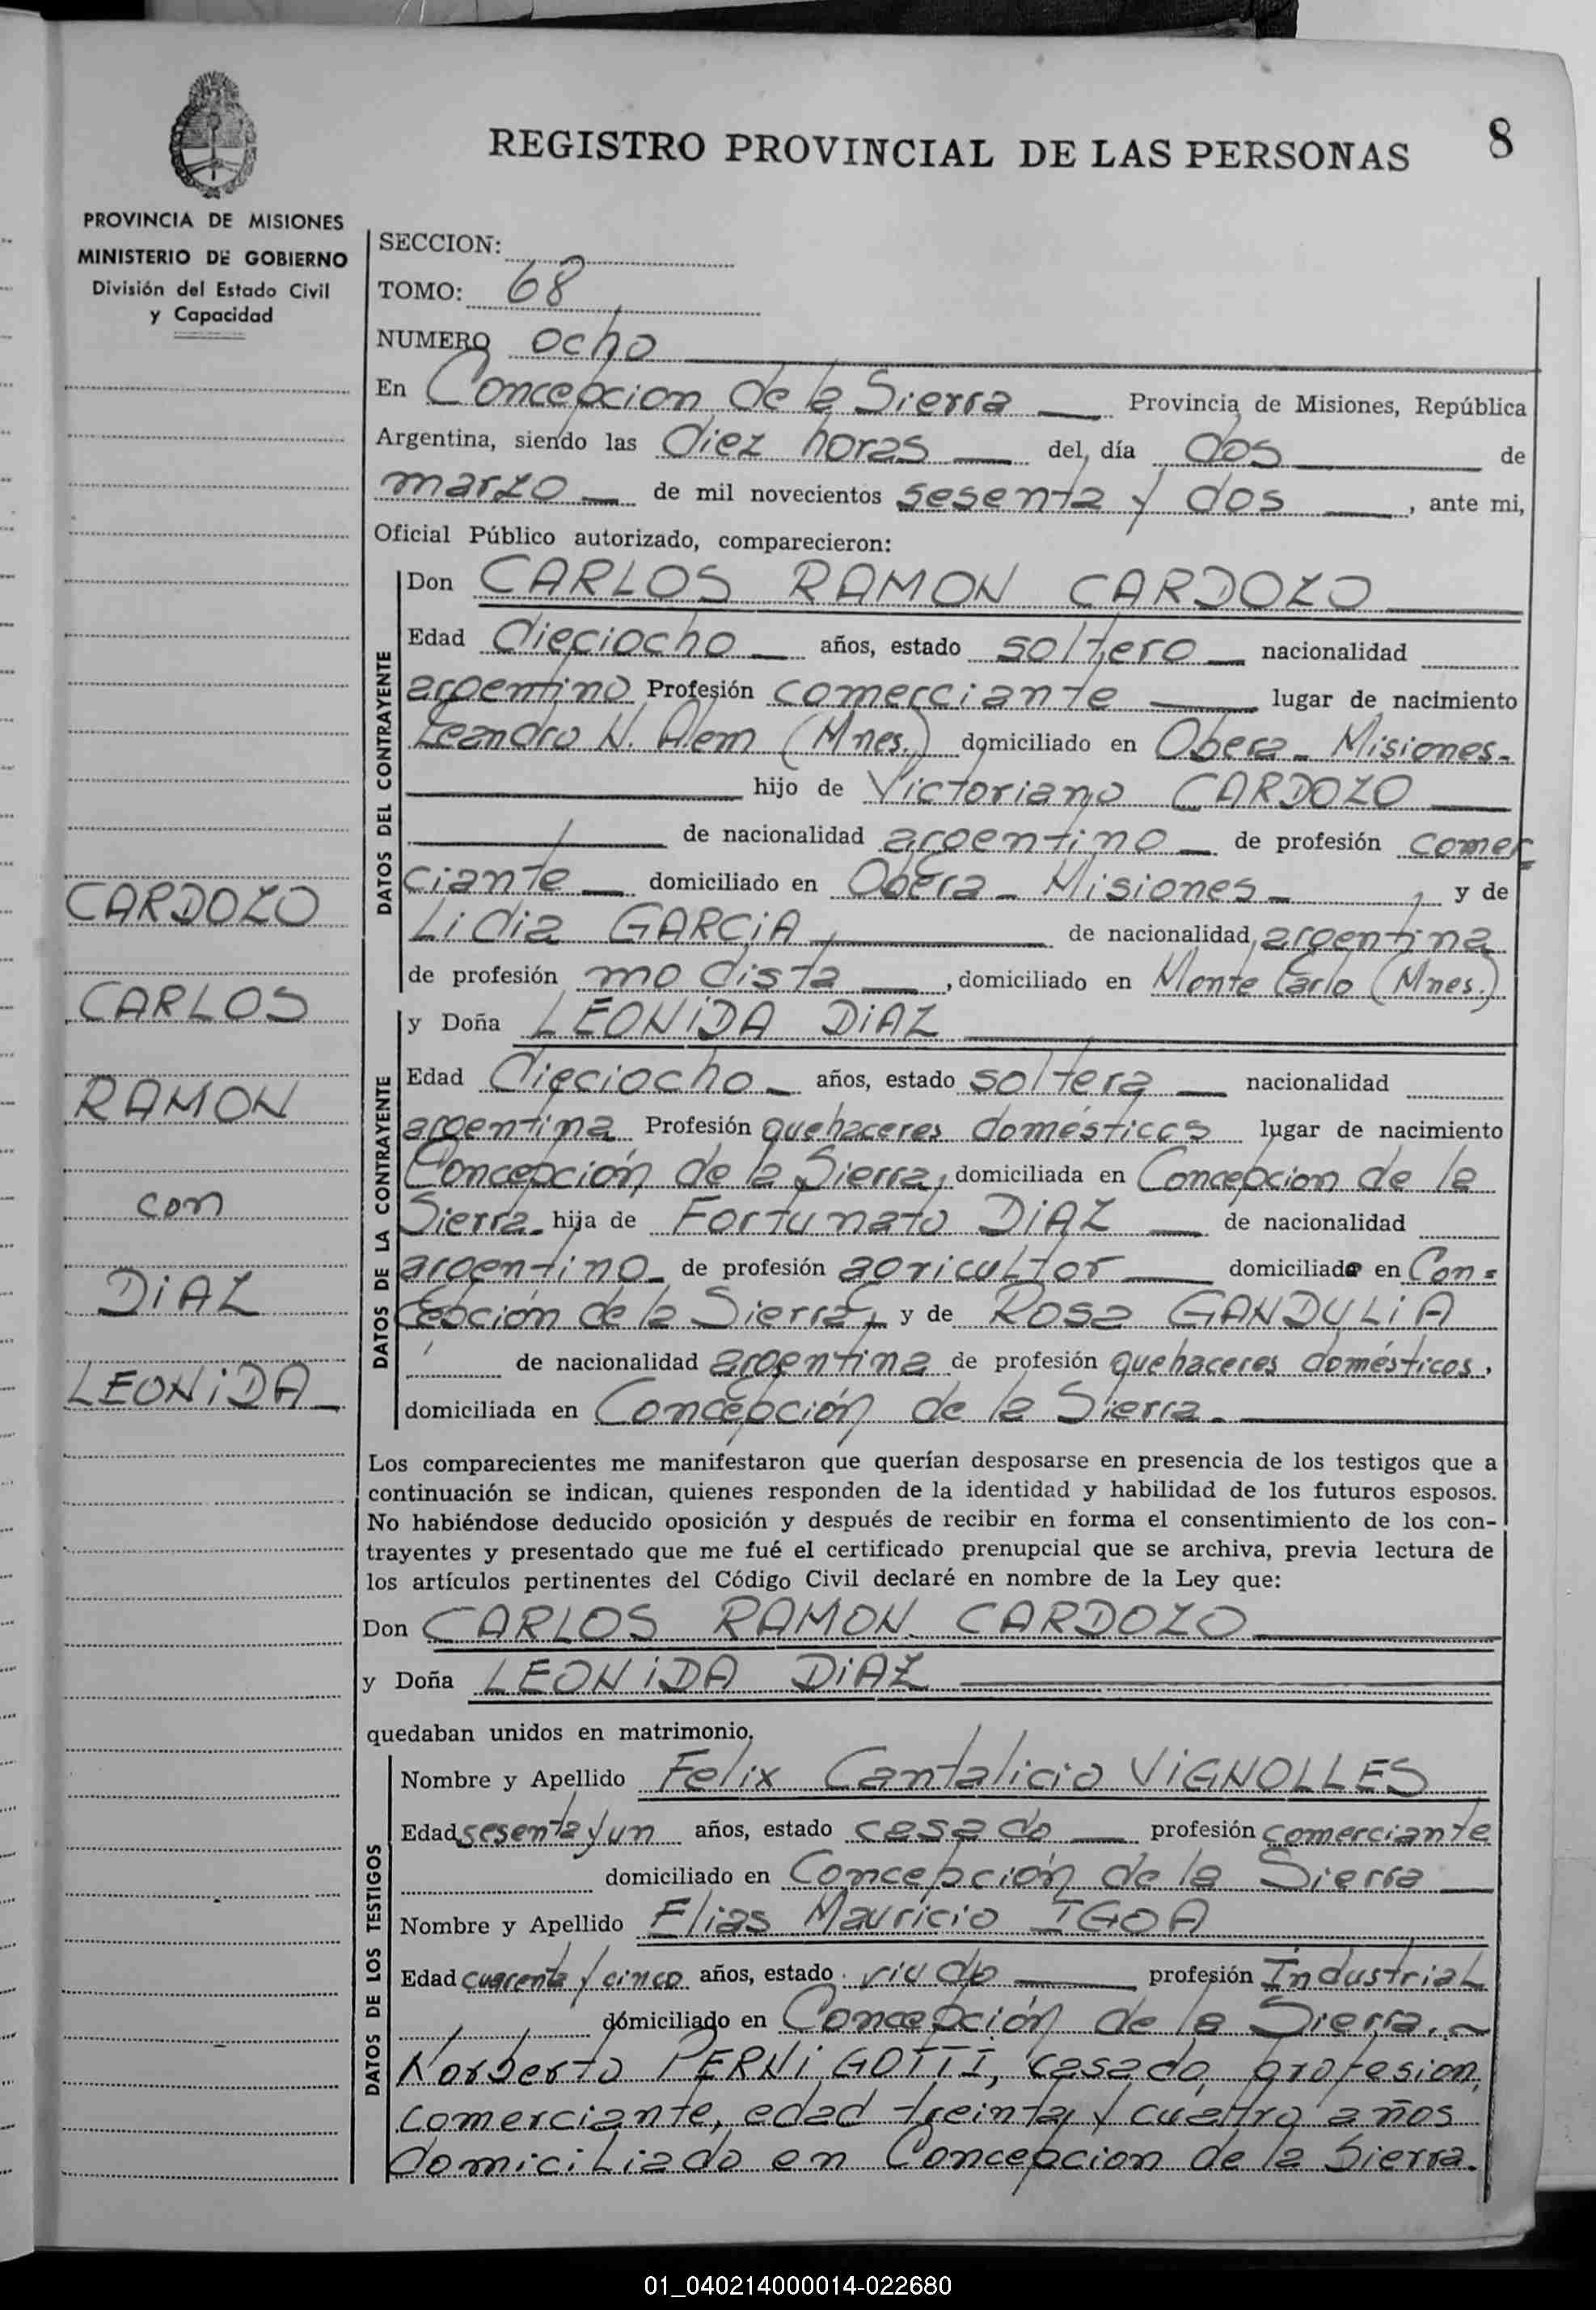 REGISTRO PROVINCIAL DE LAS PERSONAS
8
PROVINCIA DE MISIONES
MINISTERIO DE GOBIERNO
División del Estado Civil
y Capacidad
SECCION:
TOMO: 68
NUMERO ocho
En Concepcion de la Sierra Provincia de Misiones, República
Argentina, siendo las diez horas del día dos de
marzo de mil novecientos sesenta y dos, ante mi,
Oficial Público autorizado, comparecieron:
DATOS DEL CONTRAYENTE
Don CARLOS RAMON CARDOZO
Edad dieciocho años, estado soltero nacionalidad
argentino Profesión comerciante lugar de nacimiento
Leandro N. Alem (Mnes.) domiciliado en Obera - Misiones-
hijo de Victoriano CARDOZO
de nacionalidad argentino de profesión comer=
ciante domiciliado en Obera - Misiones - y de
Lidia GARCiA de nacionalidad argentina
de profesión modista, domiciliado en Monte Carlo (Mnes.)
DATOS DE LA CONTRAYENTE
y Doña LEONiDA DiAZ
Edad Dieciocho años, estado soltera nacionalidad
argentina Profesión quehaceres domésticos lugar de nacimiento
Concepción de la Sierra, domiciliada en Concepcion de la
Sierra. hija de Fortunato DiAZ de nacionalidad
argentino de profesión agricultor domiciliado en Con=
cepción de la Sierra, y de Rosa GANDULiA
de nacionalidad argentina de profesión quehaceres domésticos,
domiciliada en Concepción de la Sierra.
Los comparecientes me manifestaron que querían desposarse en presencia de los testigos que a
continuación se indican, quienes responden de la identidad y habilidad de los futuros esposos.
No habiéndose deducido oposición y después de recibir en forma el consentimiento de los con-
trayentes y presentado que me fué el certificado prenupcial que se archiva, previa lectura de
los artículos pertinentes del Código Civil declaré en nombre de la Ley que:
Don CARLOS RAMON CARDOZO
y Doña LEONiDA DiAZ
quedaban unidos en matrimonio.
DATOS DE LOS TESTIGOS
Nombre y Apellido Felix Cantalicio ViGNOLLES
Edad sesenta y un años, estado casado profesión comerciante
domiciliado en Concepción de la Sierra
Nombre y Apellido Elias Mauricio IGOA
Edad cuarenta y cinco años, estado viudo profesión Industrial
domiciliado en Concepción de la Sierra.-
Norberto PERNiGOTTI, casado, profesion,
comerciante, edad treinta y cuatro años
domiciliado en Concepcion de la Sierra.
CARDOZO
CARLOS
RAMON
con
DiAZ
LEONiDA
01_040214000014-022680